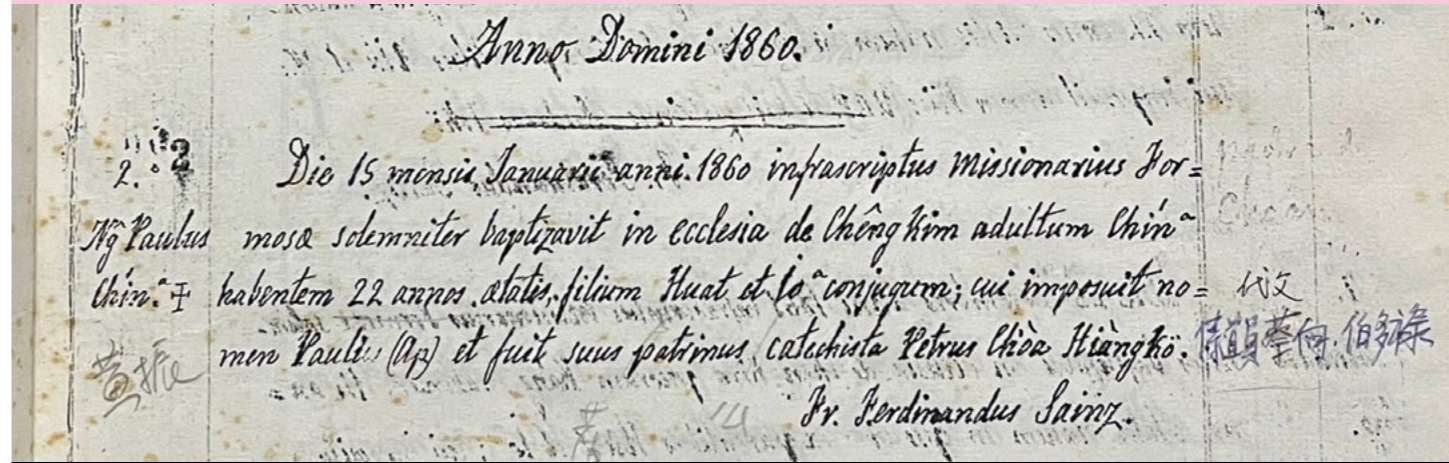 Anno Domini 1860.
2.º 2
Die 15 mensis Januarii anni 1860 infrascriptus Missionarius For=
Ñg Paulus
mosæ solemniter baptizavit in ecclesia de Chêng Kim adultum Chínª
Chín.ª ✠
habentem 22 annos ætatis, filium Huat et Loª conjugum; cui imposuit no=
代父
men Paulus (Ap) et fuit suus patrinus, catechista Petrus Chòa Hiàng Kö.
傳員蔡向 伯多祿
黃振
Fr. Ferdinandus Sainz.